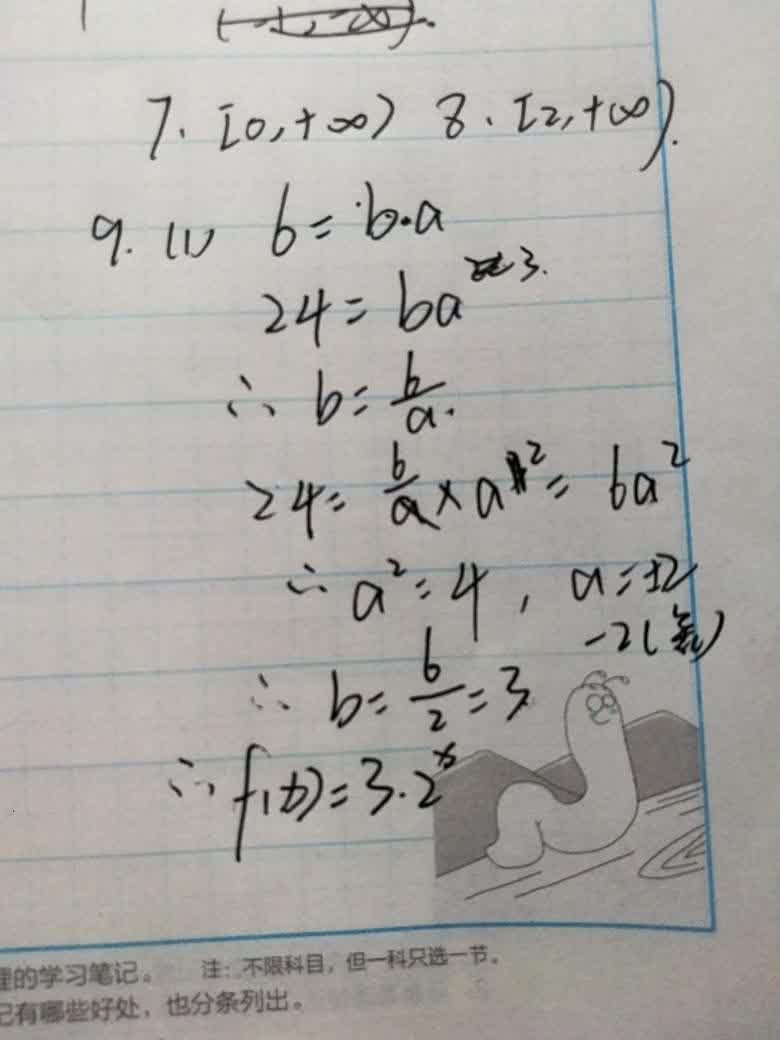 7. [0,+∞) 8. [2,+∞).
9. (1) 6=b·a
24=ba³.
∴ b=6/a.
24=6/a×a²=6a²
∴ a²=4, a=±2
-2(舍)
∴ b=6/2=3
∴ f(x)=3·2ˣ
理的学习笔记。 注：不限科目，但一科只选一节。
记有哪些好处，也分条列出。